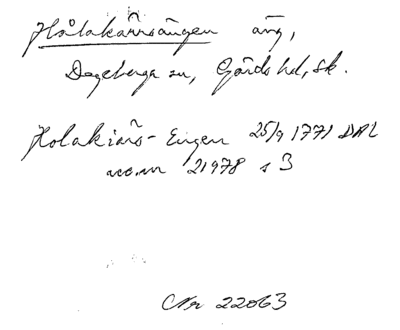 Hålakärrsängen äng,
Degeberga sn, Gärds hd, Sk.
Holakiärs-Engen 25/9 1771 DAL
acc.nr 21978 s 3
CNr 22063